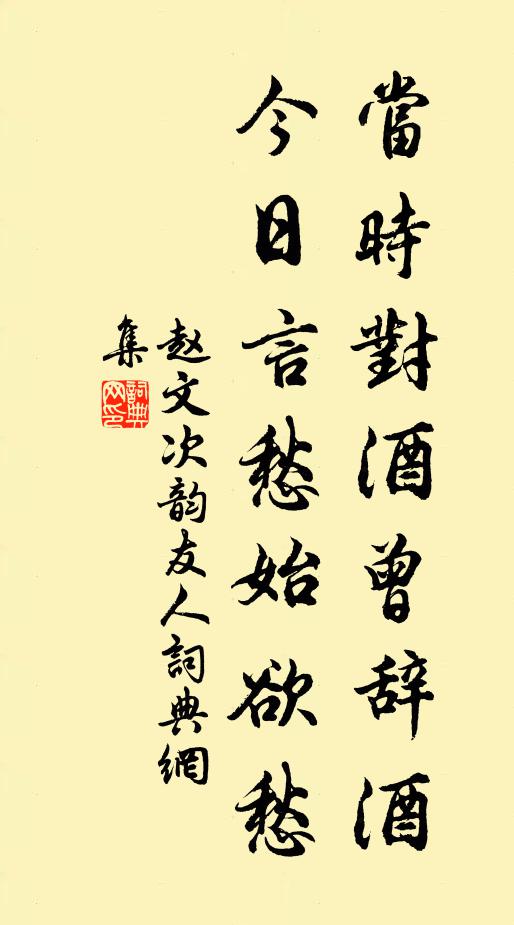 當時對酒曾辞酒
今日言愁始欲愁
赵文次韵友人詞典網
集
詞典
网印